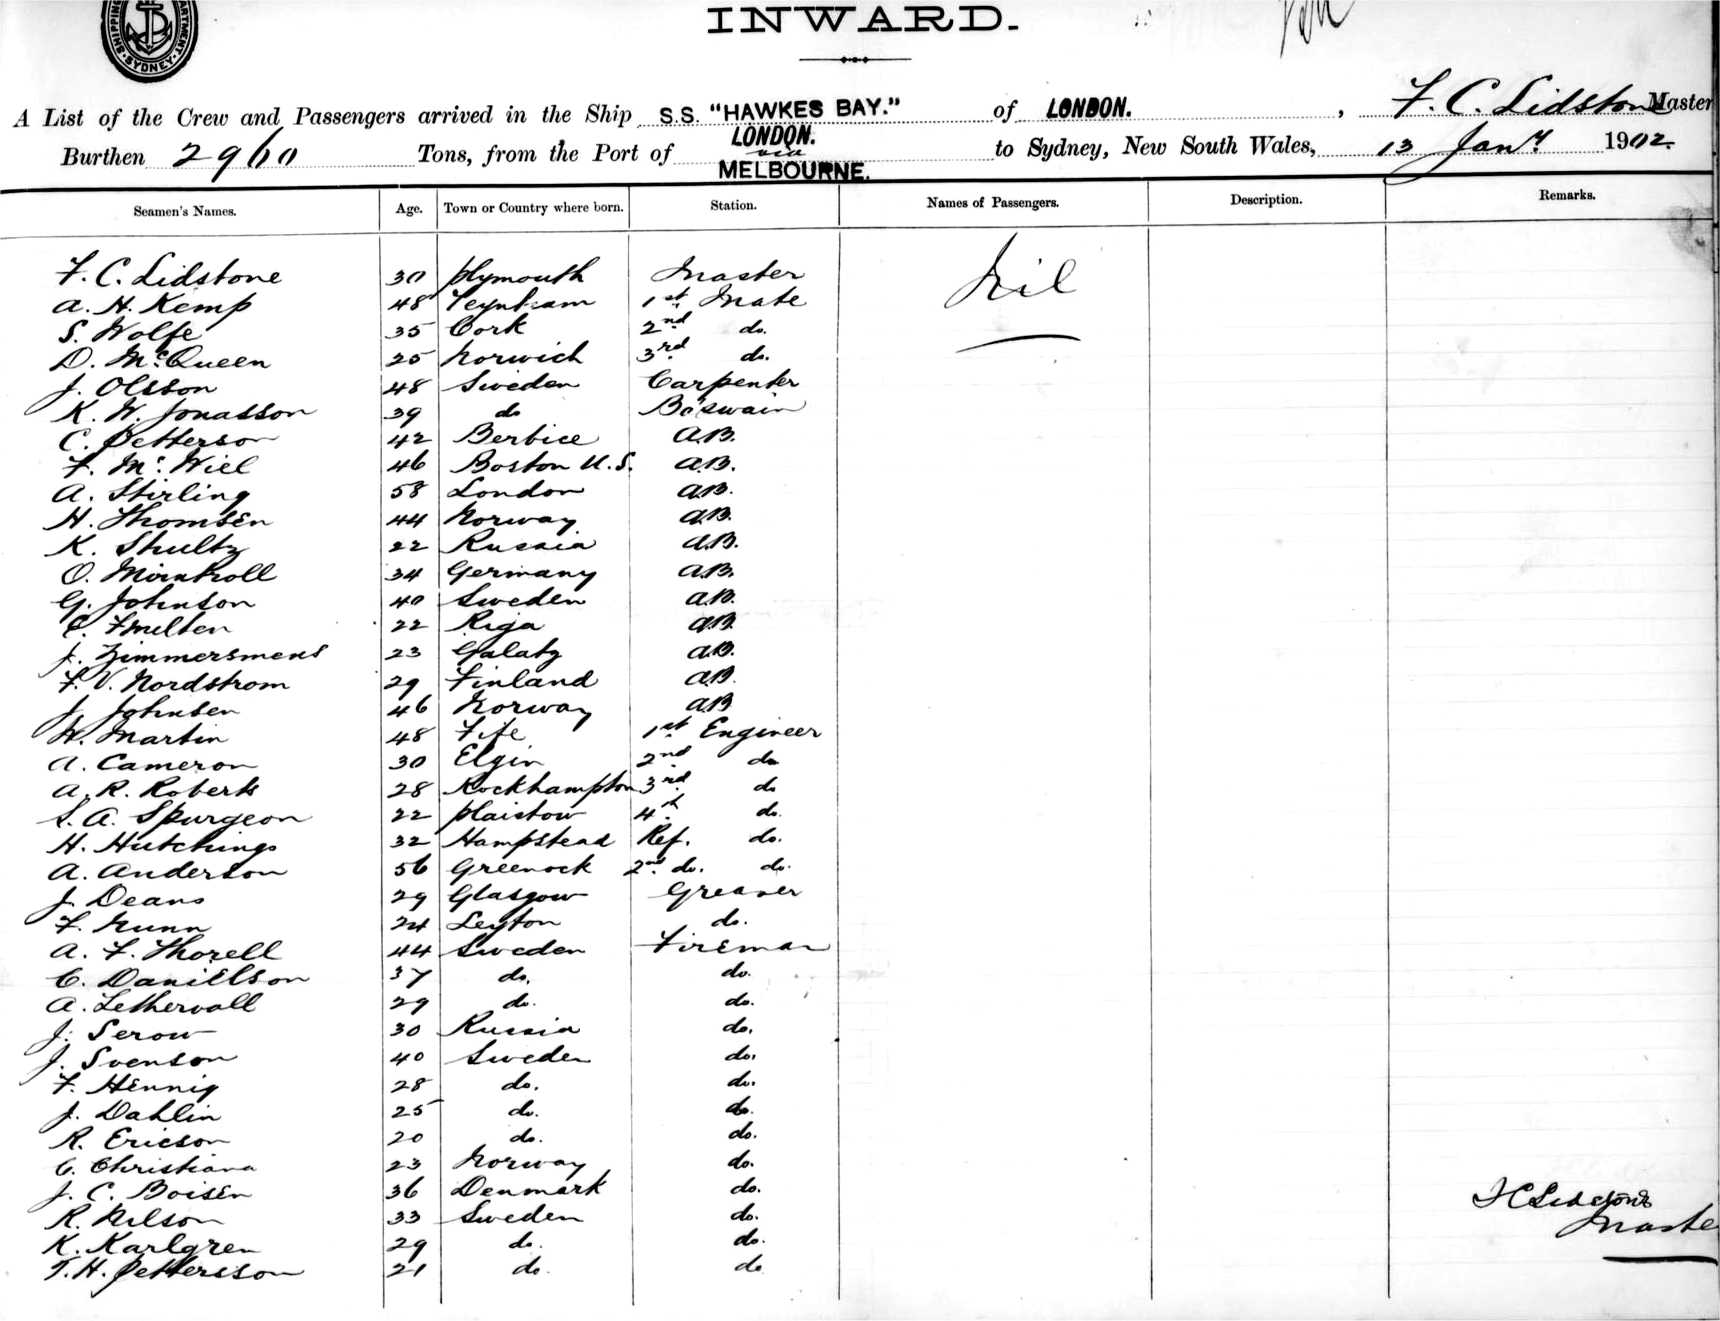 SHIPPING DEPARTMENT SYDNEY.
INWARD.
A List of the Crew and Passengers arrived in the Ship S.S. "HAWKES BAY." of LONDON. , F. C. Lidstone Master
Burthen 2960 Tons, from the Port of LONDON. via MELBOURNE. to Sydney, New South Wales, 13 Jany 1902.
Seamen's Names. Age. Town or Country where born. Station. Names of Passengers. Description. Remarks.
F. C. Lidstone 30 Plymouth Master Nil
A. H. Kemp 48 Teynham 1st Mate
S. Wolfe 35 Cork 2nd do.
D. McQueen 25 Norwich 3rd do.
J. Olsson 48 Sweden Carpenter
K. W. Jonasson 39 do Bo'swain
C. Petterson 42 Berbice A.B.
F. Mc. Niel 46 Boston U.S. A.B.
A. Stirling 58 London A.B.
H. Thomsen 44 Norway A.B.
K. Shultz 22 Russia A.B.
O. 34 Germany A.B.
G. Johnson 40 Sweden A.B.
22 Riga A.B.
J. Zimmersmens 23 Galatz A.B.
F. V. Nordstrom 29 Finland A.B.
J. Johnsen 46 Norway A.B
W. Martin 48 Fife 1st Engineer
A. Cameron 30 Elgin 2nd do
A. R. Roberts 28 Rockhampton 3rd do
S. A. Spurgeon 22 Plaistow 4th do.
H. Hutchings 32 Hampstead Ref. do.
A. Anderson 56 Greenock 2nd do. do.
J. Deans 29 Glasgow Greaser
F. Nunn 24 Leyton do.
A. F. Thorell 44 Sweden Fireman
C. Danielson 37 do. do.
A. Lethervall 29 do. do.
J. Serow 30 Russia do.
J. Svenson 40 Sweden do.
F. Hennig 28 do. do.
J. Dahlin 25 do. do.
R. Ericson 20 do. do.
C. Christiana 23 Norway do.
J. C. Boisen 36 Denmark do.
R. Nilson 33 Sweden do.
K. Karlgren 29 do. do.
T. H. Pettersson 21 do. do
F C Lidstone
Master